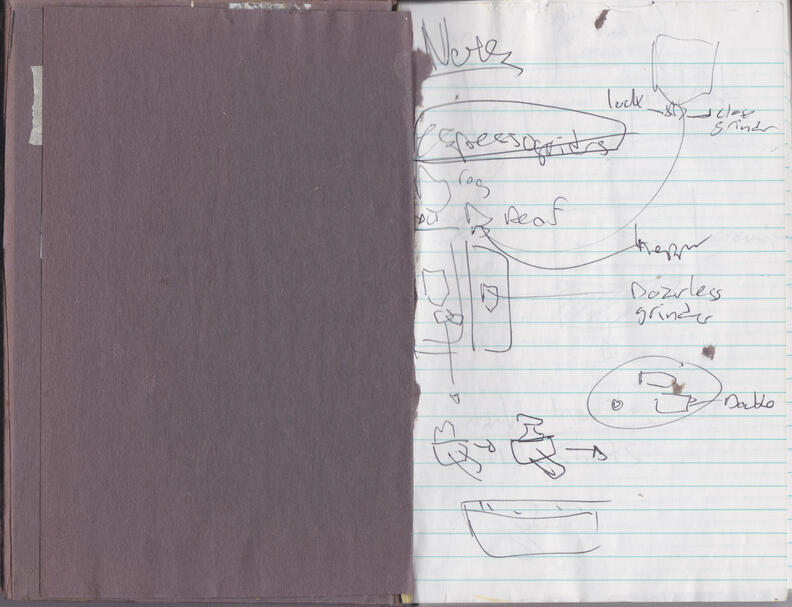 Notes
lock
close
grinder
espresso grinders
reg
Decaf
Hopper
Dozerless
grinder
Double